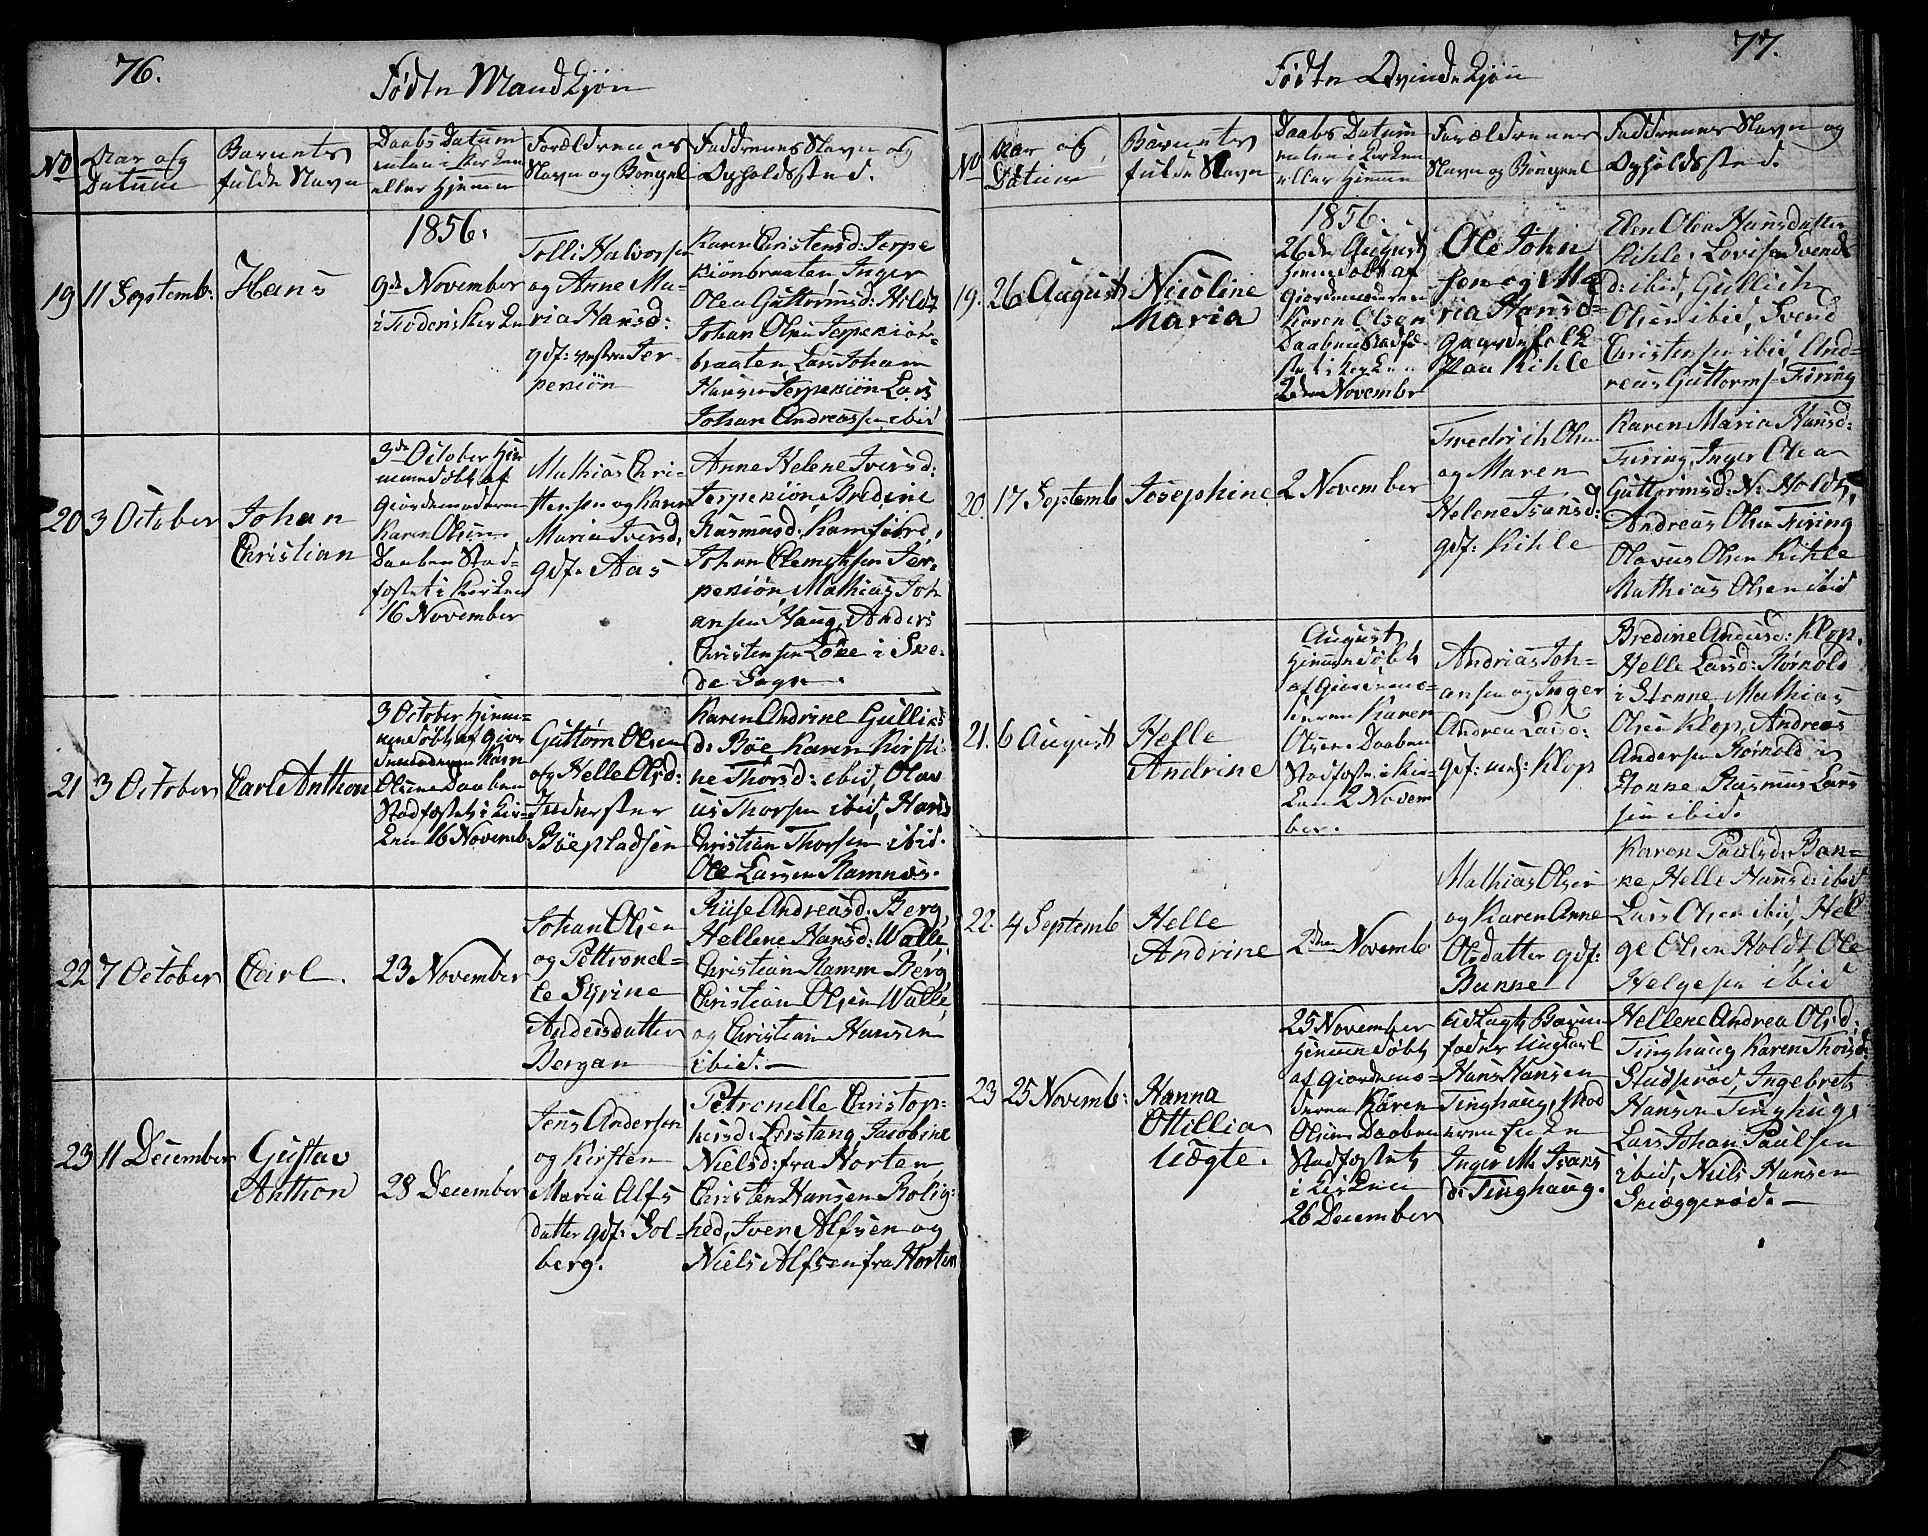 76.
Fødte Mandkjøn
No
Aar og
Datum
Barnets
fulde Navn
Daabs Datum
enten i Kirken
eller Hjemme
Forældrenes
Navn og Borgerl
Faddrenes Navn og
Opholdssted.
19
11 Septemb:
Hans
1856.
9de November
i Kirken
Tolli Halvorsen
og Anne Ma-
ria Hansd:
gdf: vestre Jer-
pekiön
Karen Christensd: Jerpe
kiönbraaten, Inger
Olea Guttormsd: Holdt
Johan Olsen Jerpekiön-
braaten, Lars Johan
Hansen Jerpekiön Lars
Johan Andreassen ibid
20
3 October
Johan
Christian
3de October Hie
mmedöbt af
Giordemoderen
Karen Olsen.
Daaben Stad-
fæstet i Kirken
16 November
Mathias Chri-
stensen og Karen
Maria Iversd:
gdf. Aas
Anne Helene Iversd:
Jerpekiön, Bredine
Rasmusd: Ramfiord,
Johan Clemetsen Jer-
pekiön, Mathias Joh
ansen Haug, Anders
Christensen Löke i Ske-
de Sogn.
21
3 October
Carl Anthon
3 October Hiem-
medöbt af Gior
demoderen Karn
Olsen Daaben
Stadfæstet i Kir-
ken 16 Novemb:
Guttorm Olsen
og Helle Olsd:
Inderster
Böepladsen
Karen Andrine Gullics
d: Böe Karen Kirsti-
ne Thorsd: ibid, Olav
us Thorsen ibid, Hans
Christian Thorsen ibid.
Ole Larsen Ramnæs.
22
7 October
Carl.
23 November
Johan Olsen
og Pettronel-
le Syrine
Andersdatter
Bergan
Riise Andreasd: Berg,
Hellene Hansd: Walle,
Christian Ramm Berg
Christian Olsen Walle,
og Christian Hansen
ibid.
23
11 December
Gustav
Anthon
28 December
Jens Andersen
og Kirsten
Maria Alfs
datter gdf: Sol-
berg.
Petronelle Christop-
hersd: Lerstang, Jacobine
Nielsd: fra Horten
Christen Hansen Rolig-
hed, Iver Alfsen og
Niels Alfsen fra Horten
77.
Fødte Qvindekjön
No
Aar og
Datum
Barnets
fulde Navn
Daabs Datum
enten i Kirken
eller Hiemme
Forældrenes
Navn og Borgerl
Faddrenes Navn og
Opholdssted.
19.
26 August
Nicoline
Maria
1856.
26de August
Hiemmedöbt af
Giordemoderen
Karen Olsen
Daaben Stadfæ-
stet i Kirken
2den Novembr
Ole John
sen og Ma
ria Hansd-
gaardfolk
paa Kihle
Elen Olea Hansdatter
Kihle, Lovise Svends
d: ibid, Gullich
Olsen ibid, Svend
Christensen ibid, And-
reas Guttorms- Firing
20.
17 Septemb
Josephine
2 November
Fredrich Olsen
og Maren
Helene Isansd:
gdf: Kihle
Karen Maria Hansd:
Firing, Inger Olea
Guttormsd: N: Holdt,
Andreas Olsen Firing
Olavus Olsen Kihle
Mathias Olsen ibid
21.
6 August
Helle
Andrine
August
Hiemmedöbt
af Giordemo-
deren Karen
Olsen Daaben
Stadfæstet i Kir-
ken 2 Novem
ber.
Andrias Joh-
ansen og Inger
Andrea Larsd:
gdf: Klop
Bredine Andersd: Klop,
Helle Larsd: Körnold
i Stonne, Mathias
Olsen Klop, Andreas
Andersen Körnold i
Stonne Rasmus Lars
sen ibid.
22.
4 Septemb
Helle
Andrine
2den Novemb.
Mathias Olsen
og Karen Anne
Olsdatter gdf:
Banne
Karen Paulsd: Ban-
ke, Helle Hansd: ibid
Lars Olsen ibid, Hel
ge Olsen Holdt, Ole
Helgesen ibid
23
25 Novemb:
Hanna
Ottillia
Uægte.
25 November
Hiemmedöbt
af Giordemo-
deren Karen
Olsen Daaben
Stadfæstet
i Kirken
26 December
Udlagt Barne
fader Ungkarl
Hans Hansen
Tinghaug,
Inger M. Isans
d: Tinghaug.
Hellene Andrea Olsd:
Tinghaug Karen Thorsd:
Stadsröd, Ingebret
Hansen Tinghug,
Lars Johan Paulsen
ibid, Niels Hansen
Skiæggeröd.